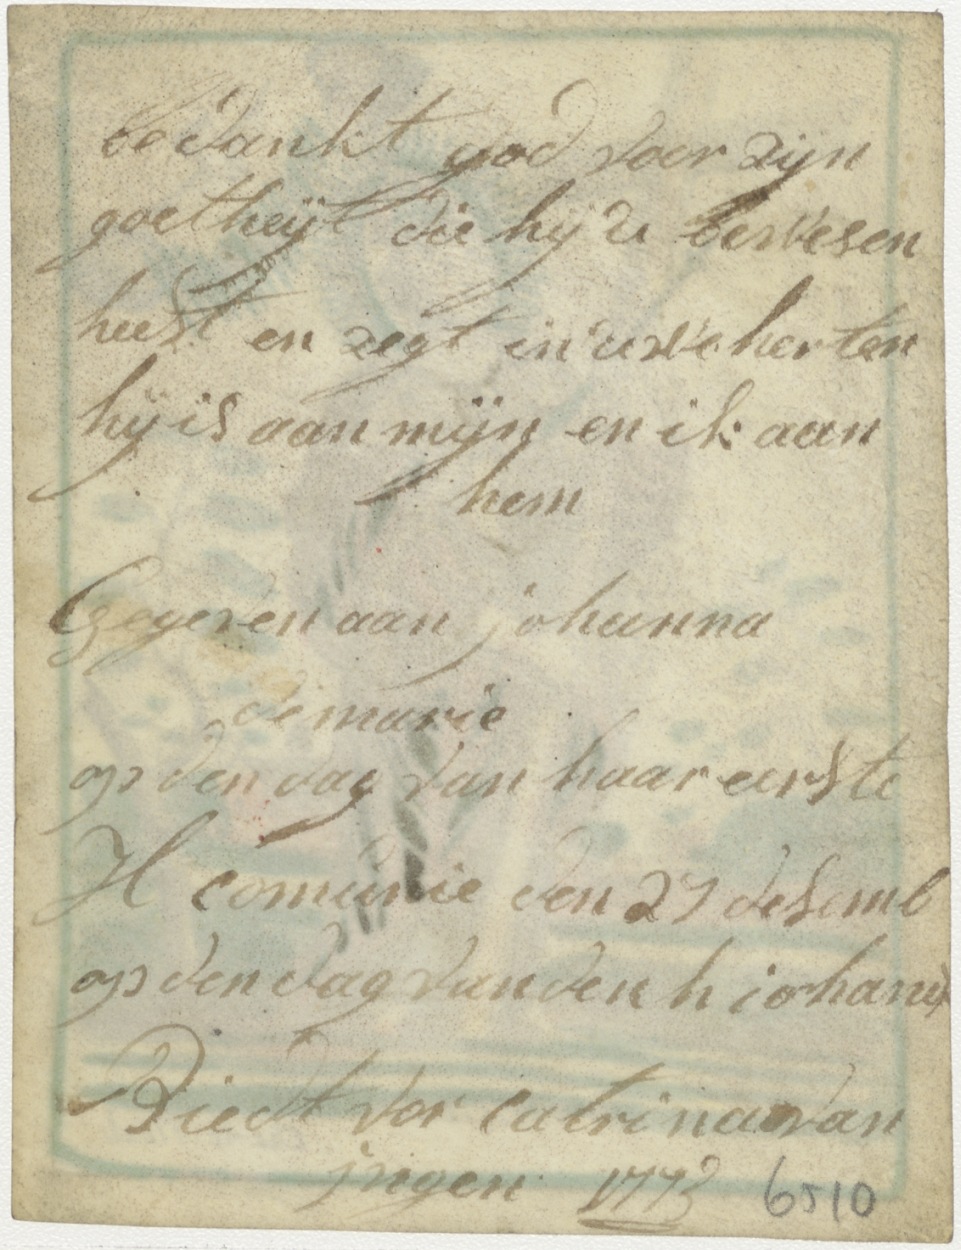 bedankt god voor zijn
goetheijt die hij u bewesen
heeft en zegt in uwe herten
hij is aan mijn en ik aan
hem
Gegeven aan johanna
de marie
op den dag van haar eerste
H comunie den 27 desemb
op den dag van den h iohan
Biedt vor catrina van
jngen 1773
6510